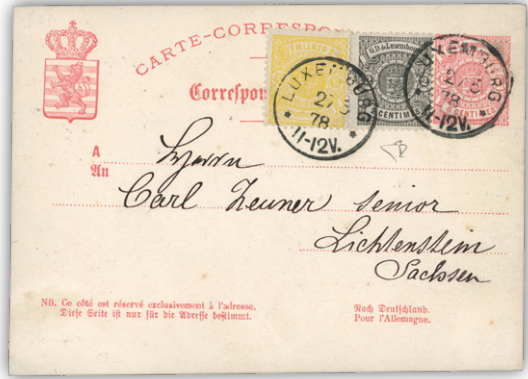 CARTE-CORRESPO
Correspon
G.D. de Luxembourg
CENTIM
LUXEMBURG
27 5
78
11-12V.
LUXEMBURG
78
11-12V.
A
An
Herrn
Carl Zeuner senior
Lichtenstein
Sachsen
NB. Ce côté est réservé exclusivement à l'adresse.
Diese Seite ist nur für die Adresse bestimmt.
Nach Deutschland.
Pour l'Allemagne.